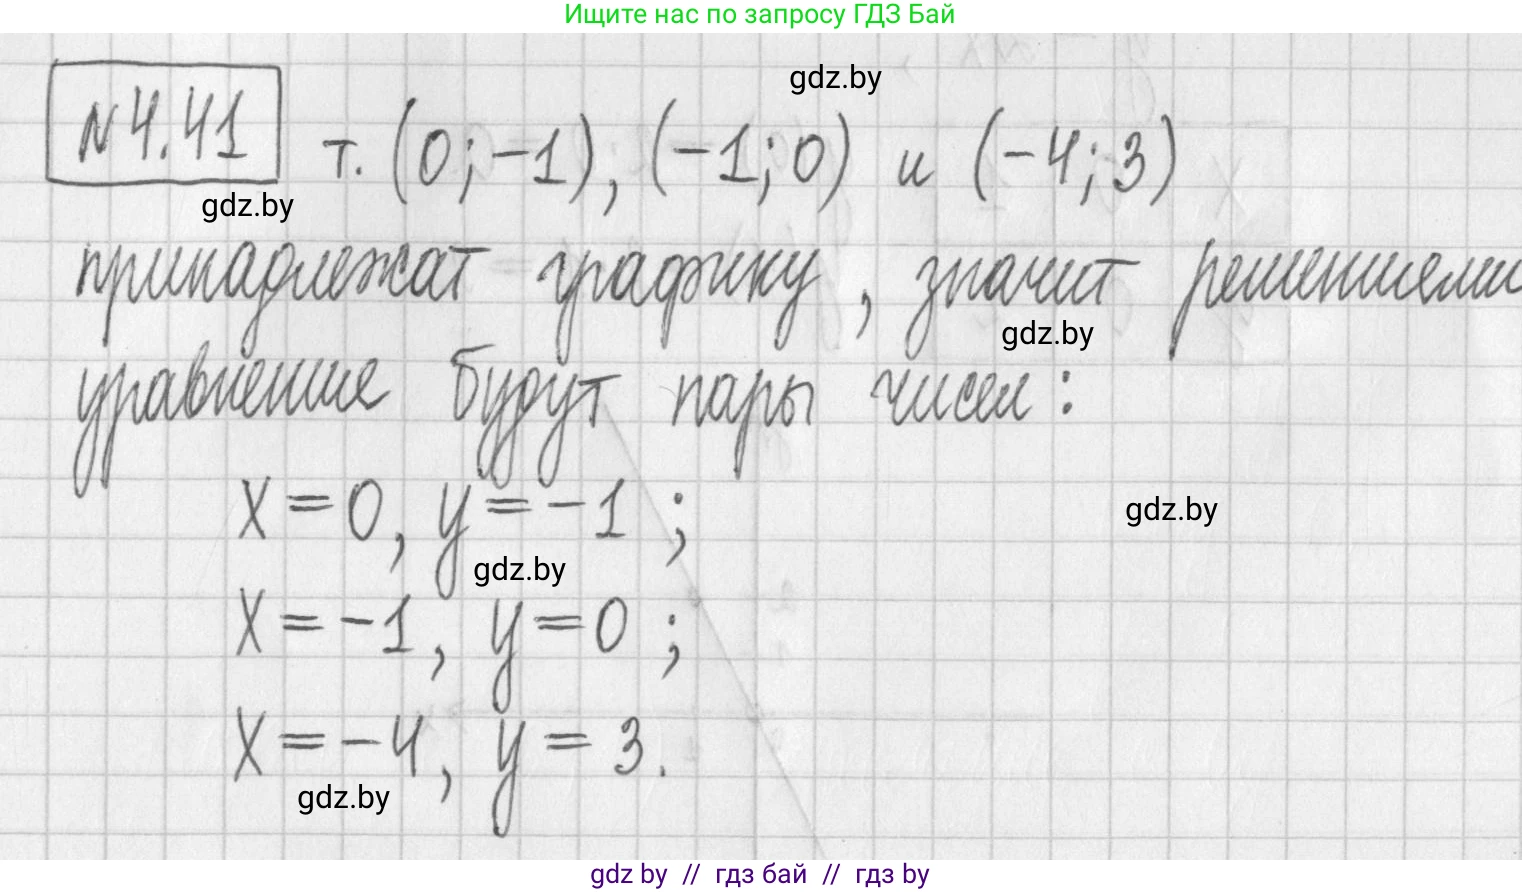 Ищите нас по запросу ГДЗ Бай
gdz.by
№4.41 т. (0; -1), (-1; 0) и (-4; 3)
gdz.by
принадлежат графику, значит решениями
gdz.by
уравнение будут пары чисел:
x = 0, y = -1 ;
gdz.by
gdz.by
x = -1, y = 0 ;
x = -4, y = 3.
gdz.by
gdz by // гдз бай // гдз by